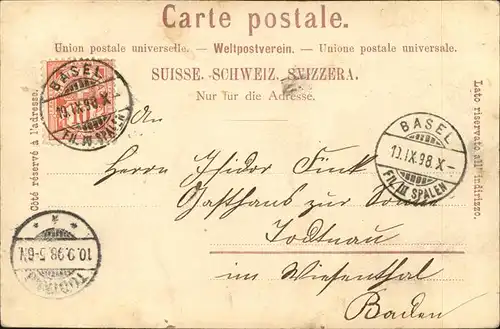 Carte postale.
Union postale universelle. — Weltpostverein. — Unione postale universale.
SUISSE. SCHWEIZ. SVIZZERA.
Nur für die Adresse.
Côté réservé à l'adresse.
Lato riservato all'indirizzo.
BASEL
10.IX.98.X-
FIL. IV SPALEN
BASEL
10.IX.98.X-
FIL. IV SPALEN
An
Herrn Isidor Fink
Gasthaus zur Sonne
Todtnau
im Wiesenthal
Baden
10.9.98.5-6N.
TODTNAU